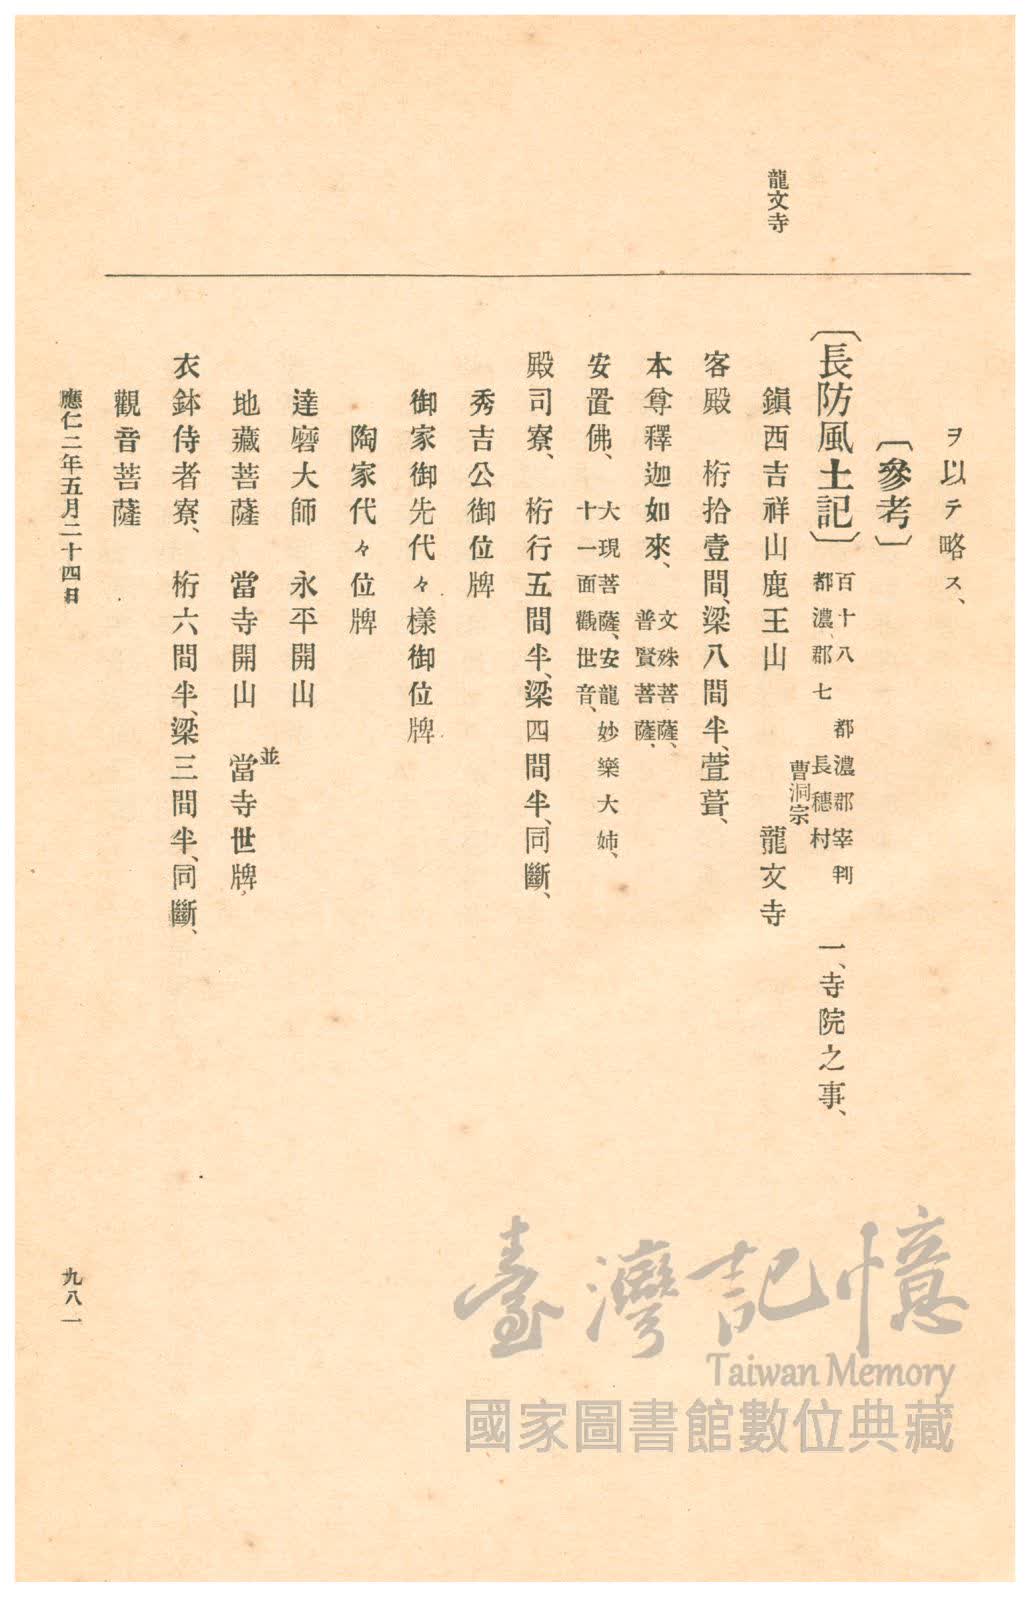 龍文寺
ヲ以テ略ス、
〔參考〕
〔長防風土記〕百十八都濃郡七 都濃郡宰判長穗村 一、寺院之事、
鎭西吉祥山鹿王山 曹洞宗 龍文寺
客殿 桁拾壹間、梁八間半、萱葺、
本尊釋迦如來、文殊菩薩、普賢菩薩、
安置佛、大現菩薩、安龍妙樂大姉、十一面觀世音、
殿司寮、桁行五間半、梁四間半、同斷、
秀吉公御位牌
御家御先代々樣御位牌
陶家代々位牌
達磨大師 永平開山
地藏菩薩 當寺開山 並當寺世牌、
衣鉢侍者寮、桁六間半、梁三間半、同斷、
觀音菩薩
應仁二年五月二十四日
九八一
臺灣記憶
Taiwan Memory
國家圖書館數位典藏